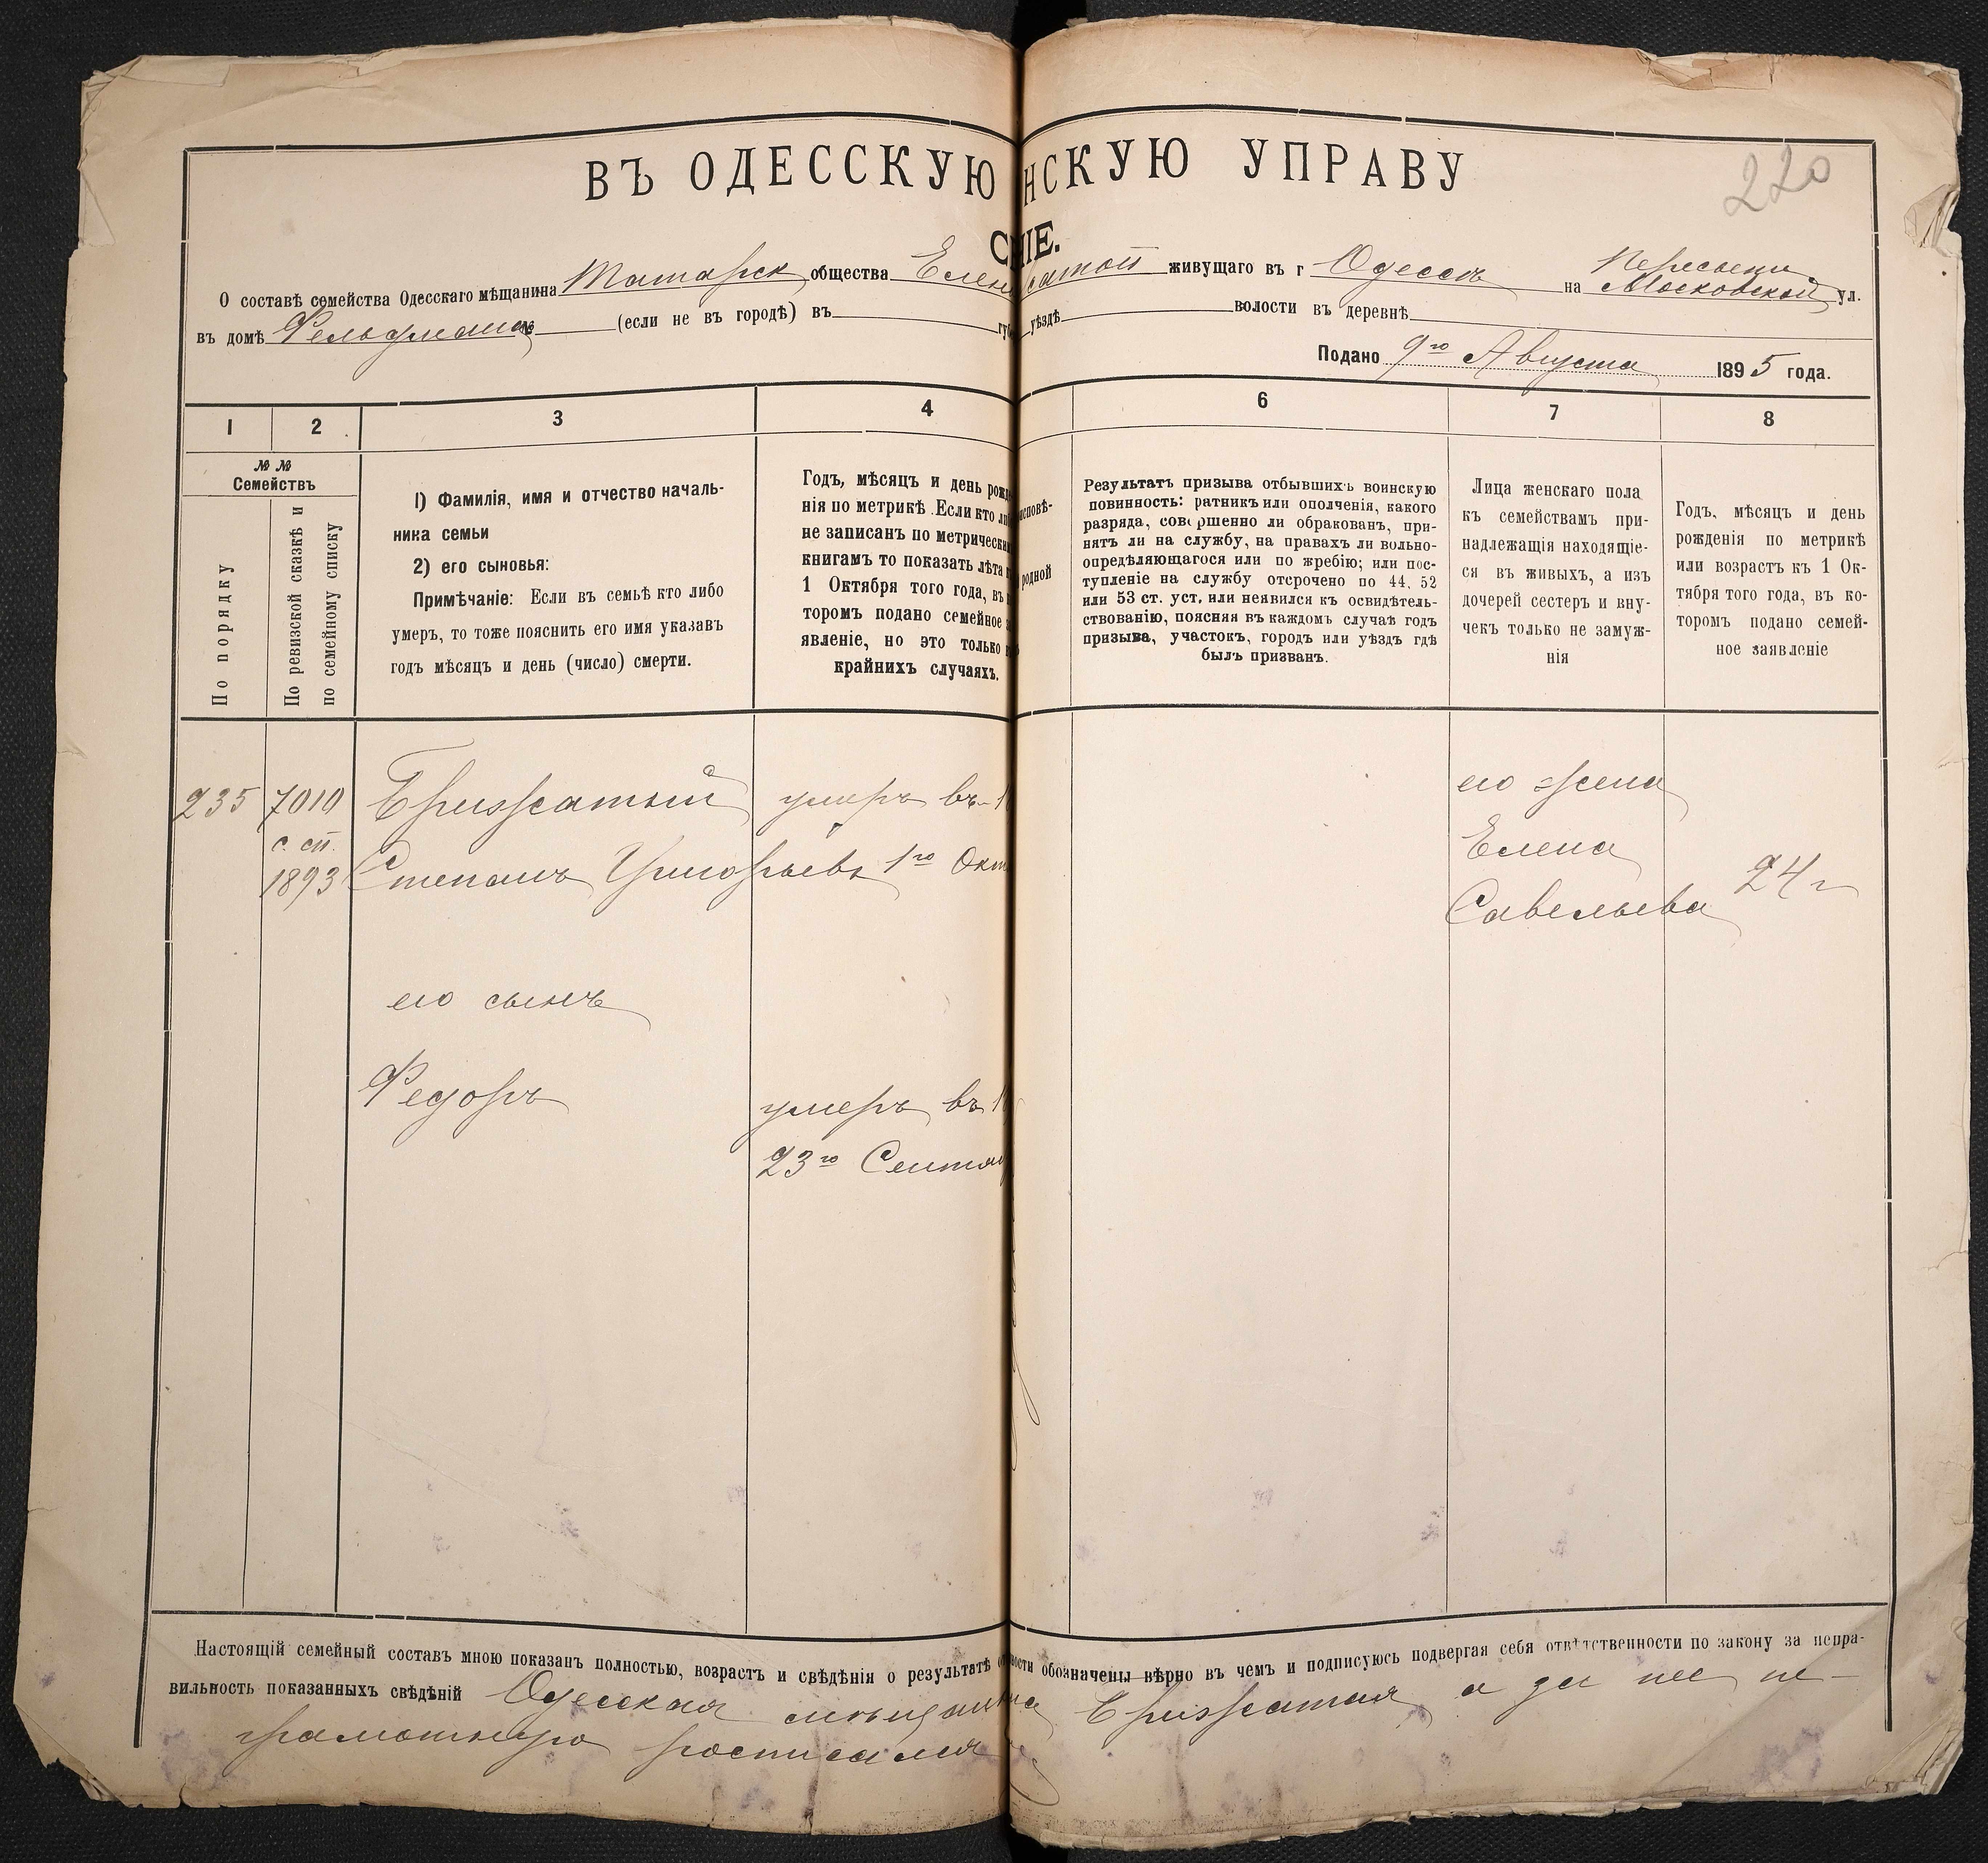 ВЪ ОДЕССКУЮ НСКУЮ УПРАВУ
220
С НІЕ.
О составѣ семейства Одесскаго мѣщанина Татарск общества Елены затой живущаго въ г Одессѣ на Пересыпи Московской ул.
въ домѣ Фельдмана (если не въ городѣ) въ губ уѣздѣ волости въ деревнѣ
Подано 9го Августа 1895 года.
1 2 3 4 6 7 8
№ № Семействъ
По порядку
По ревизской сказкѣ и
по семейному списку
1) Фамилія, имя и отчество началь-
ника семьи
2) его сыновья:
Примѣчаніе: Если въ семьѣ кто либо
умеръ, то тоже пояснить его имя указавъ
годъ мѣсяцъ и день (число) смерти.
Годъ, мѣсяцъ и день рожде
нія по метрикѣ. Если кто ли
не записанъ по метрически
книгамъ то показать лѣта
1 Октября того года, въ
торомъ подано семейное
явленіе, но это только
крайнихъ случаяхъ.
исповѣ-
родной
Результатъ призыва отбывшихъ воинскую
повинность: ратникъ или ополченія, какого
разряда, совершенно ли обракованъ, при-
нятъ ли на службу, на правахъ ли вольно-
опредѣляющагося или по жребію; или пос-
тупленіе на службу отсрочено по 44, 52
или 53 ст. уст. или неявился къ освидѣтель-
ствованію, поясняя въ каждомъ случаѣ годъ
призыва, участокъ, городъ или уѣздъ гдѣ
былъ призванъ.
Лица женскаго пола
къ семействамъ при-
надлежащія находящіе-
ся въ живыхъ, а изъ
дочерей сестеръ и вну-
чекъ только не замуж-
нія
Годъ, мѣсяцъ и день
рожденія по метрикѣ
или возрастъ къ 1 Ок-
тября того года, въ ко-
торомъ подано семей-
ное заявленіе
235 7010 умеръ въ 1 его жена
с. сп. Елена
1893 Степанъ Григорьевъ 1го Окт 24 г
Савельева
его сынъ
Федоръ умеръ въ 1
23го Сентяб
Настоящій семейный составъ мною показанъ полностью, возрастъ и свѣдѣнія о результатѣ о вости обозначены вѣрно въ чемъ и подписуюсь подвергая себя отвѣтственности по закону за непра-
вильность показанныхъ свѣдѣній Одесская мѣщанка а за нее не-
грамотную росписался